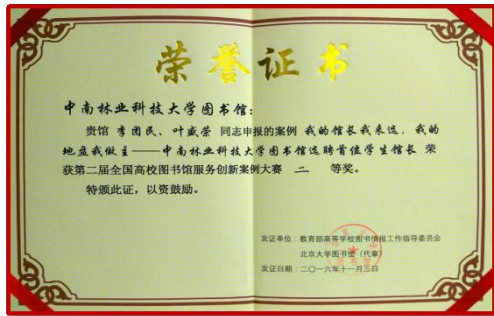 荣誉证书
中南林业科技大学图书馆：
贵馆 李团民、叶盛荣 同志申报的案例 我的馆长我来选，我的
地盘我做主——中南林业科技大学图书馆选聘首位学生馆长 荣
获第二届全国高校图书馆服务创新案例大赛 二 等奖。
特颁此证，以资鼓励。
发证单位：教育部高等学校图书情报工作指导委员会
北京大学图书馆（代章）
发证日期：二〇一六年十一月三日